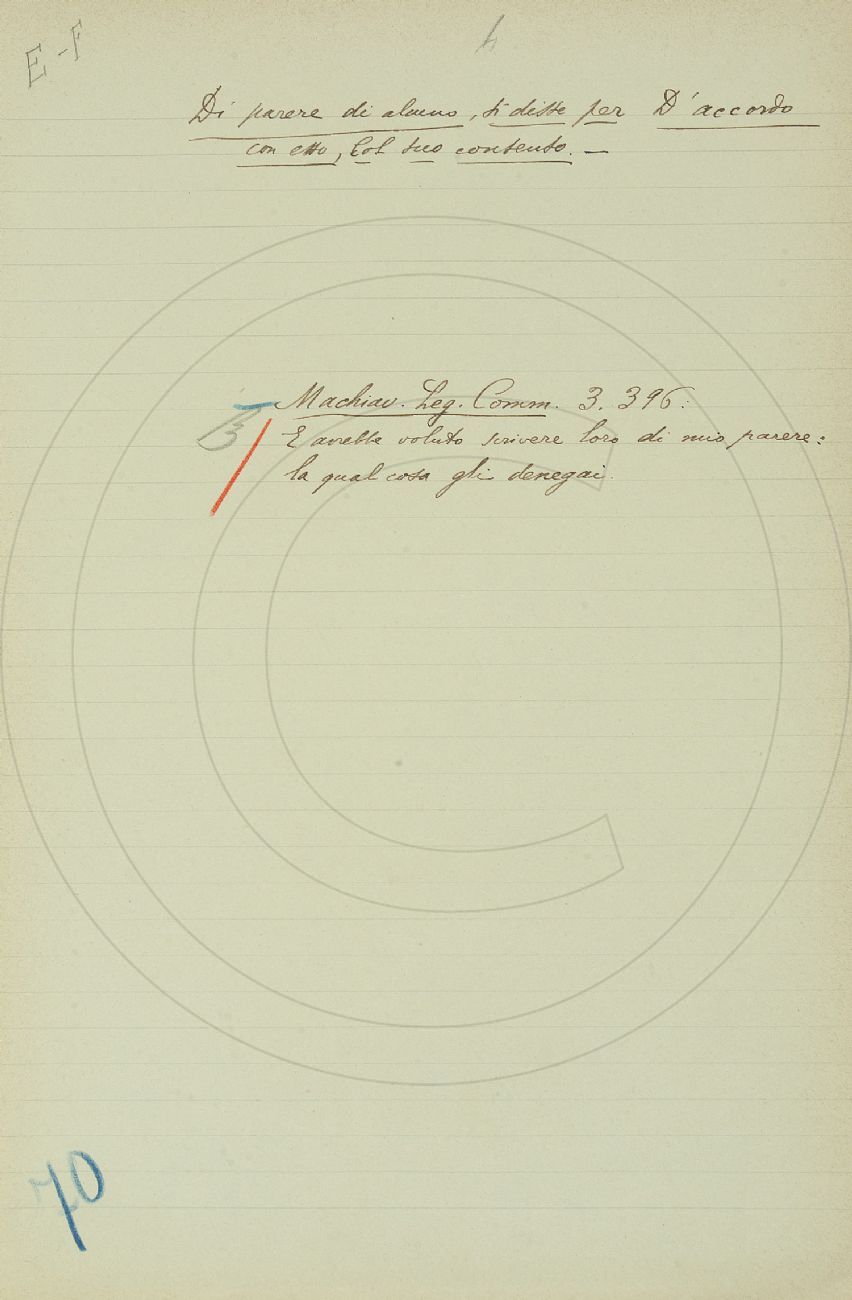 E-F
4
Di parere di alcuno, si disse per D'accordo
con esso, Col suo contento. —
Machiav. Leg. Comm. 3. 396:
E avrebbe voluto scrivere loro di mio parere:
la qual cosa gli denegai.
70